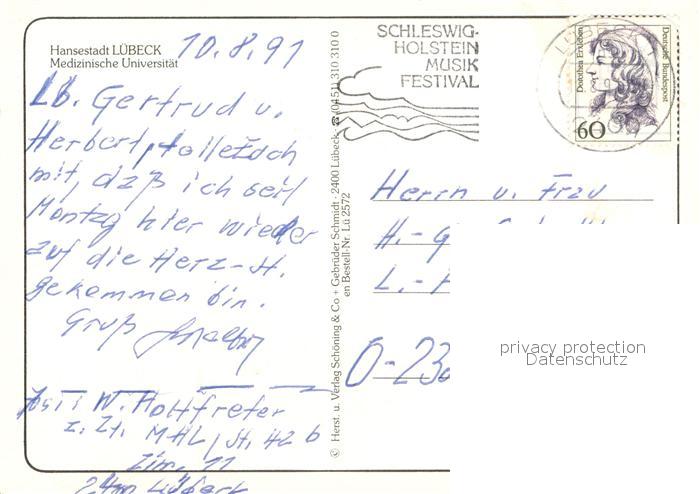 Hansestadt LÜBECK
Medizinische Universität
10.8.91
Lb. Gertrud u.
Herbert,
mit, daß ich seit
Montag hier wieder
auf die Herz-St.
gekommen bin.
Gruß
W. Holtfreter
z. Zt. MHL, St. 42 b
Zim. 11
2400 Lübeck
© Herst. u. Verlag Schöning & Co + Gebrüder Schmidt · 2400 Lübeck · ☎ (0451) 310 310 0
en Bestell-Nr. Lü 2572
SCHLESWIG-
HOLSTEIN
MUSIK
FESTIVAL
Dorothea Erxleben
Deutsche Bundespost
60
Herrn u. Frau
H.-G
L.-
O-23
privacy protection
Datenschutz